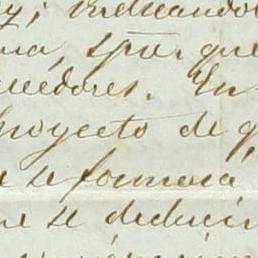 y; indicando
spre. que
eedores. En
proyecto de q
e se formará
e se deducir